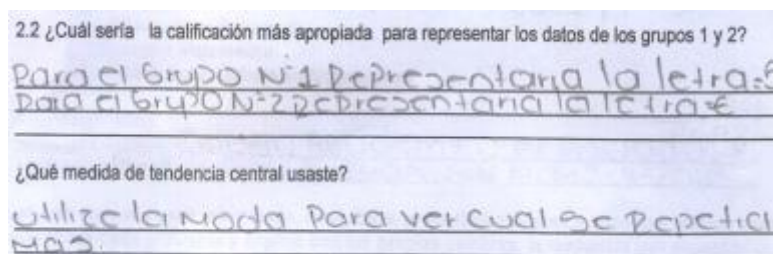 2.2 ¿Cuál sería la calificación más apropiada para representar los datos de los grupos 1 y 2?
Para el Grupo N°1 Representaria la letra:S
Para el Grupo N°2 Representaria la letra:E
¿Qué medida de tendencia central usaste?
utilize la Moda Para ver cual se Repetia
Mas.